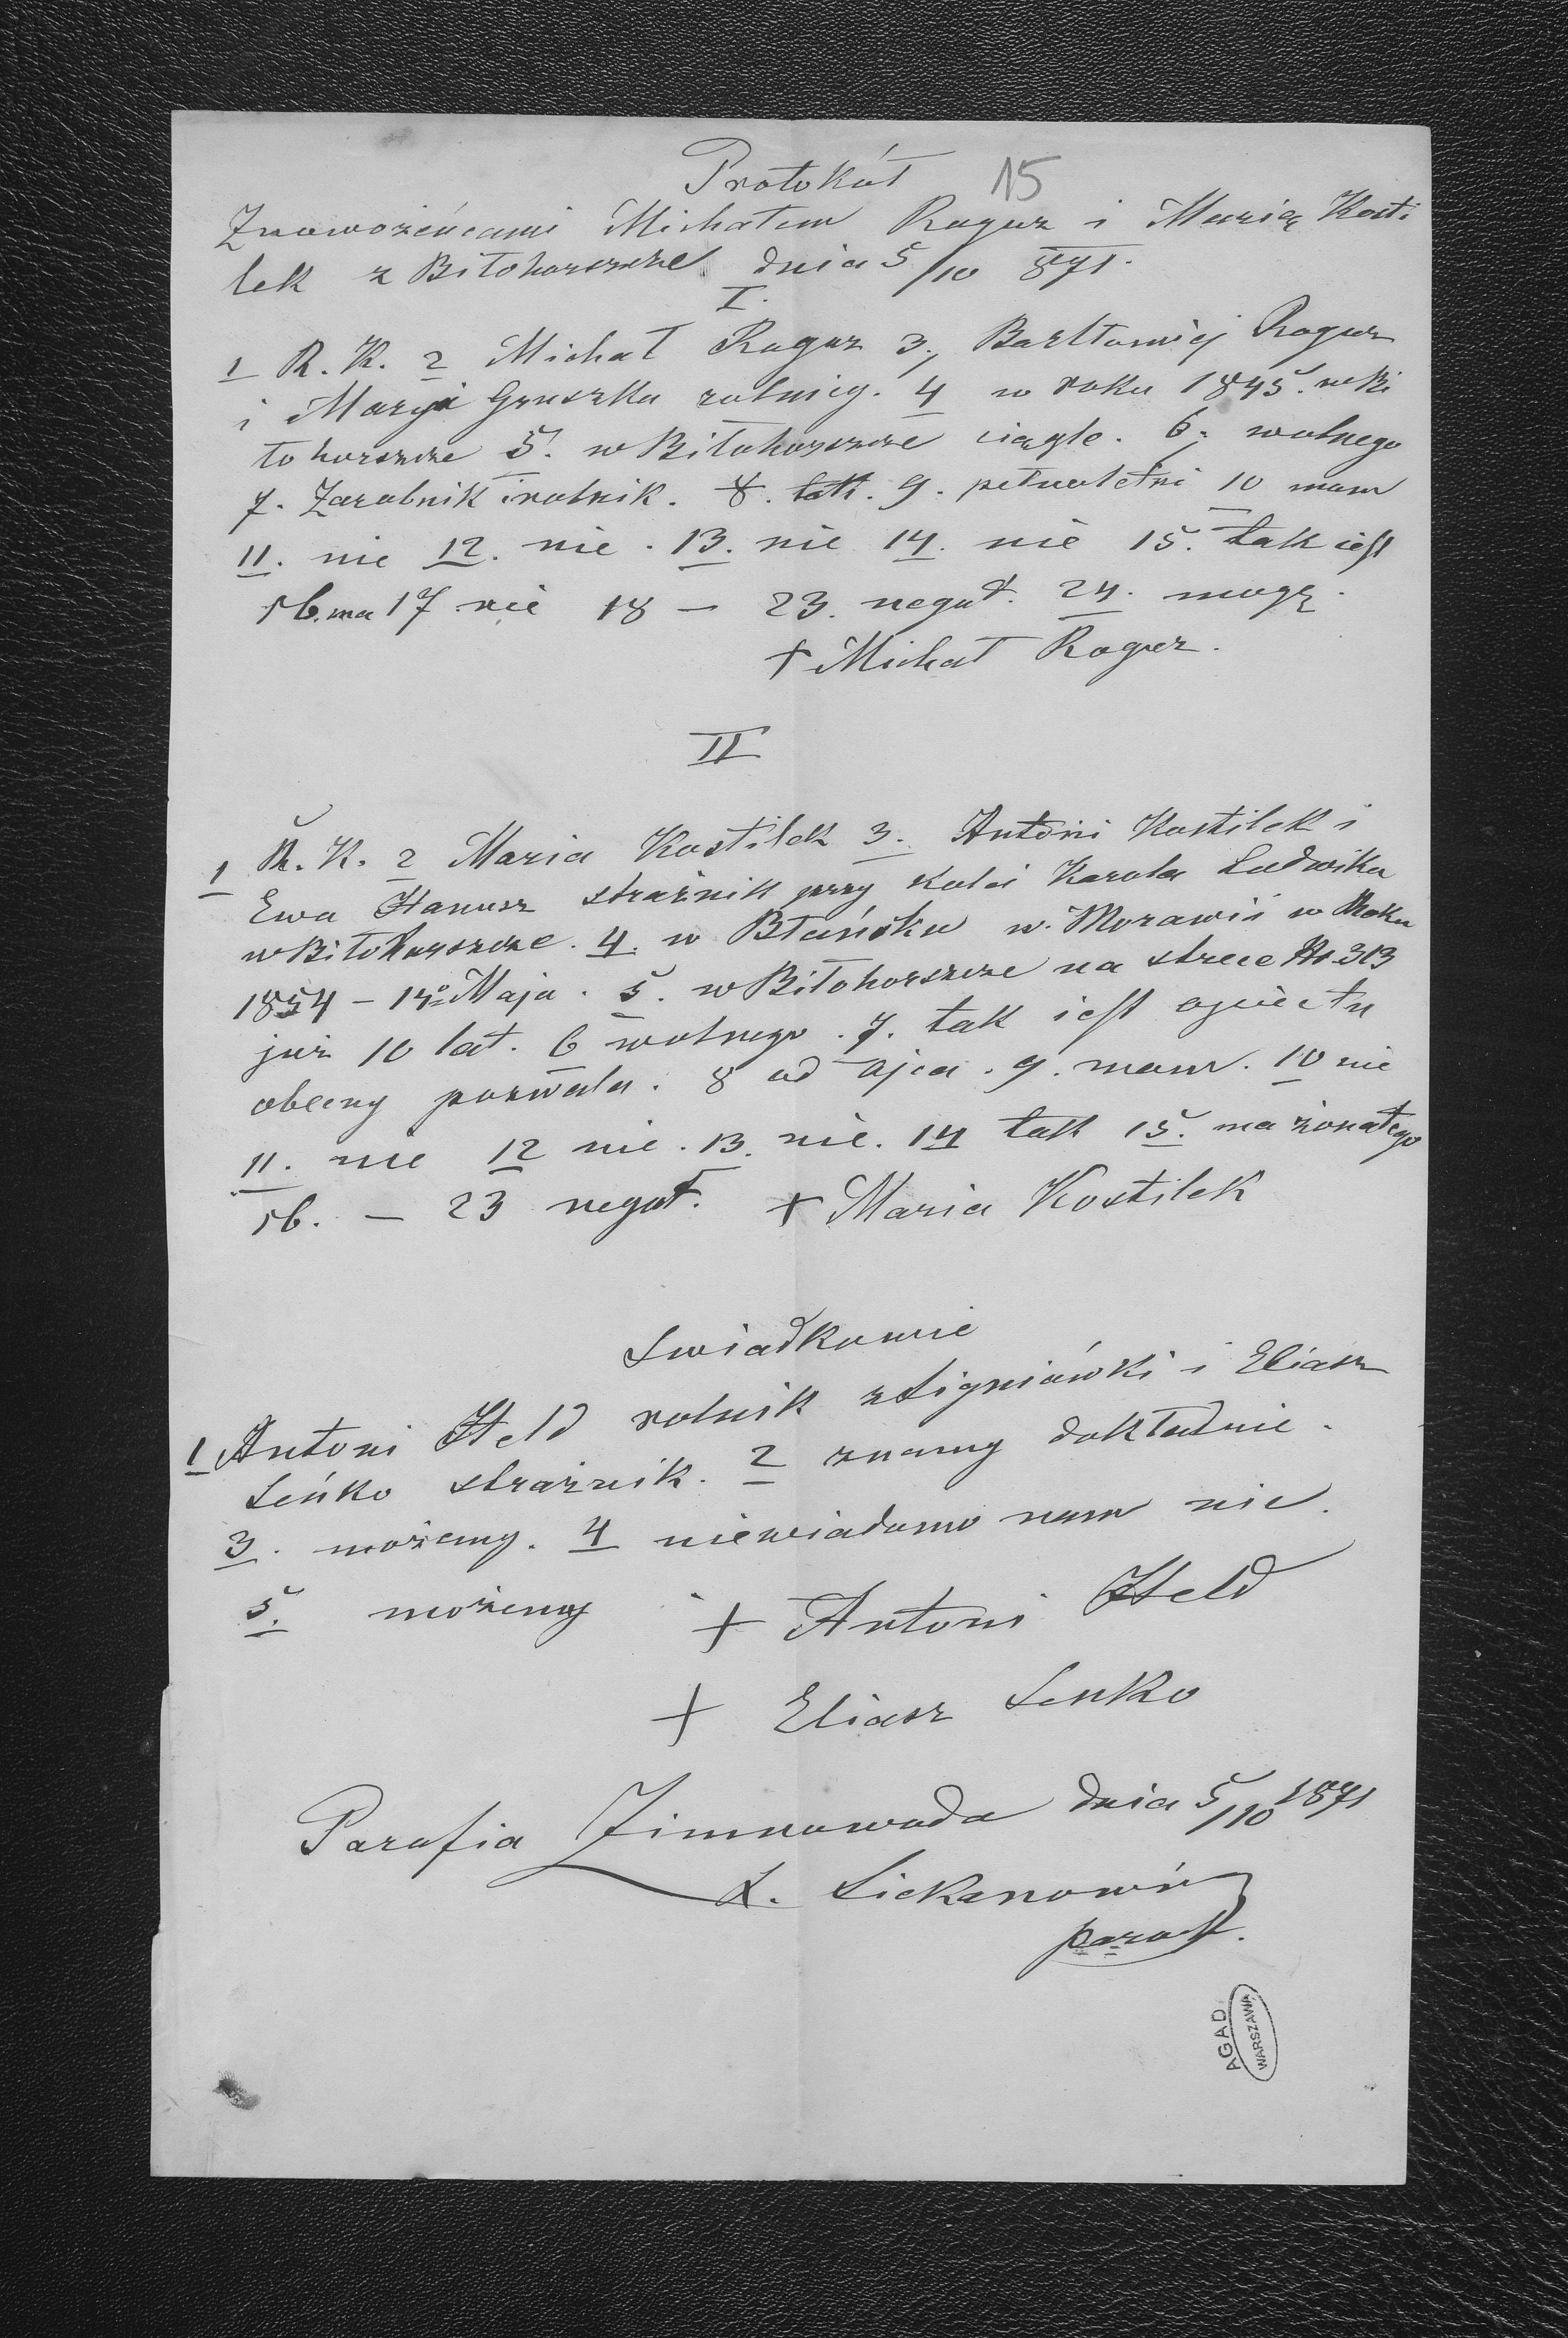 Protokół 15
Znowożeńcami Michałem Roguz i Marią Kosti
lek z Biłohorszcze dnia 5/10 871.
I.
1 R. K. 2 Michał Roguz 3, Bartłomiej Roguz
i Marya Gruszka rolnicy. 4 w roku 1845. w Bi
łohorszcze 5. w Biłohorszcze ciągle. 6, wolnego
7. Zarobnik i rolnik. 8. tak. 9. pełnoletni 10 mam
11. nie 12. nie. 13. nie 14. nie 15. tak jest
16. ma 17 nie 18 — 23. negat. 24. mogę.
+ Michał Roguz.
II
1 R. K. 2 Maria Kostilek 3. Antoni Kostilek i
Ewa Hanusz strażnik przy kolei Karola Ludwika
w Biłohorszcze. 4. w Błańsku w. Morawii w Roku
1854 – Maja. 5. w Biłohorszcze na strece No 313
już 10 lat. 6 wolnego. 7. tak jest ojciec tu
obecny pozwala. 8 od ojca. 9. mam. 10 nie
11. nie 12 nie. 13. nie. 14 tak 15. ma żonatego
16. — 23 negat. + Maria Kostilek
Swiadkowie
1 Antoni Held rolnik z Signiówki i Eliasz
Seńko strażnik. 2 znamy dokładnie.
3. możemy. 4 niewiadomo nam nic.
5. możemy + Antoni Held
+ Eliasz Senko
Parafia Zimnawoda dnia 5/10 1871
parost.
AGAD
WARSZAWA